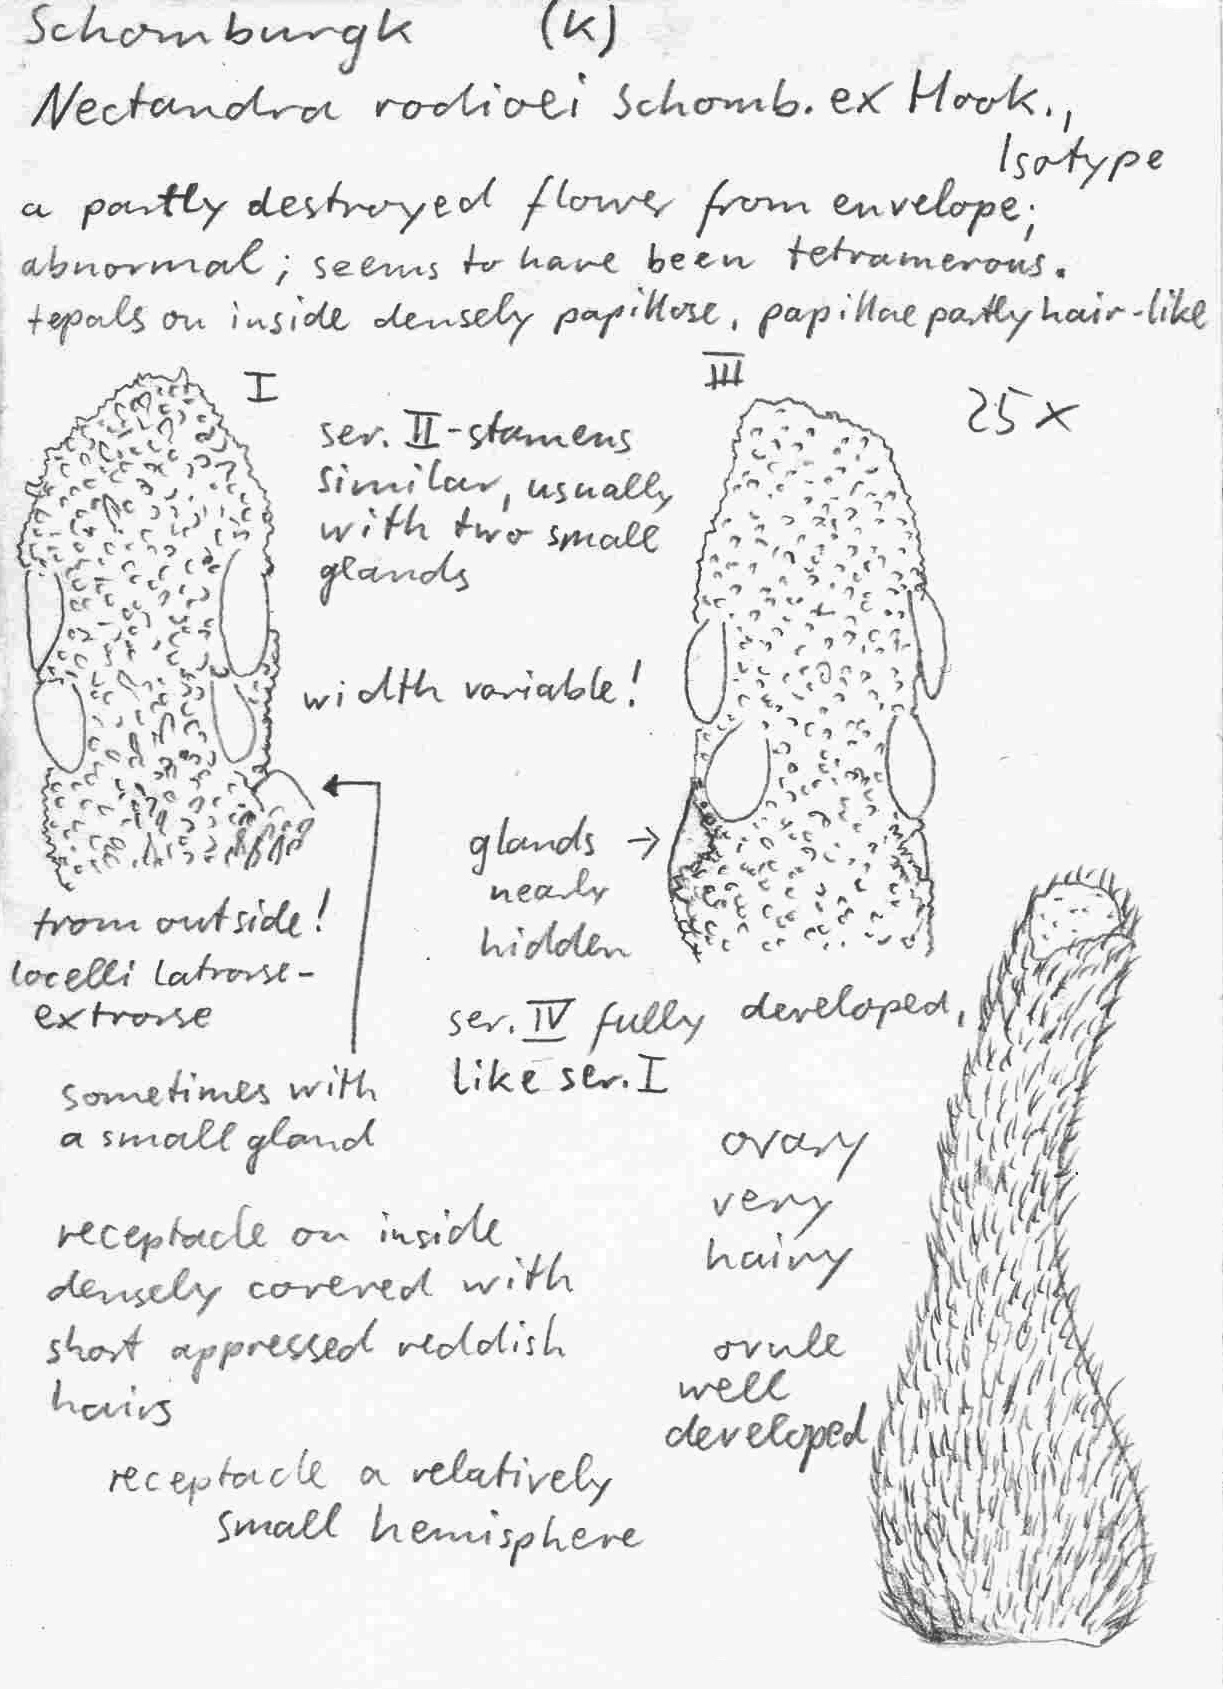 Schomburgk (K)
Nectandra rodioei Schomb. ex Hook.,
Isotype
a partly destroyed flower from envelope;
abnormal; seems to have been tetramerous.
tepals on inside densely papillose, papillae partly hair-like
I
III
25 x
ser. II-stamens
similar, usually
with two small
glands
width variable!
glands →
nearly
hidden
from outside!
locelli latrorse-
extrorse
ser. IV fully developed,
like ser. I
sometimes with
a small gland
ovary
very
hairy
receptacle on inside
densely covered with
short appressed reddish
hairs
ovule
well
developed
receptacle a relatively
small hemisphere